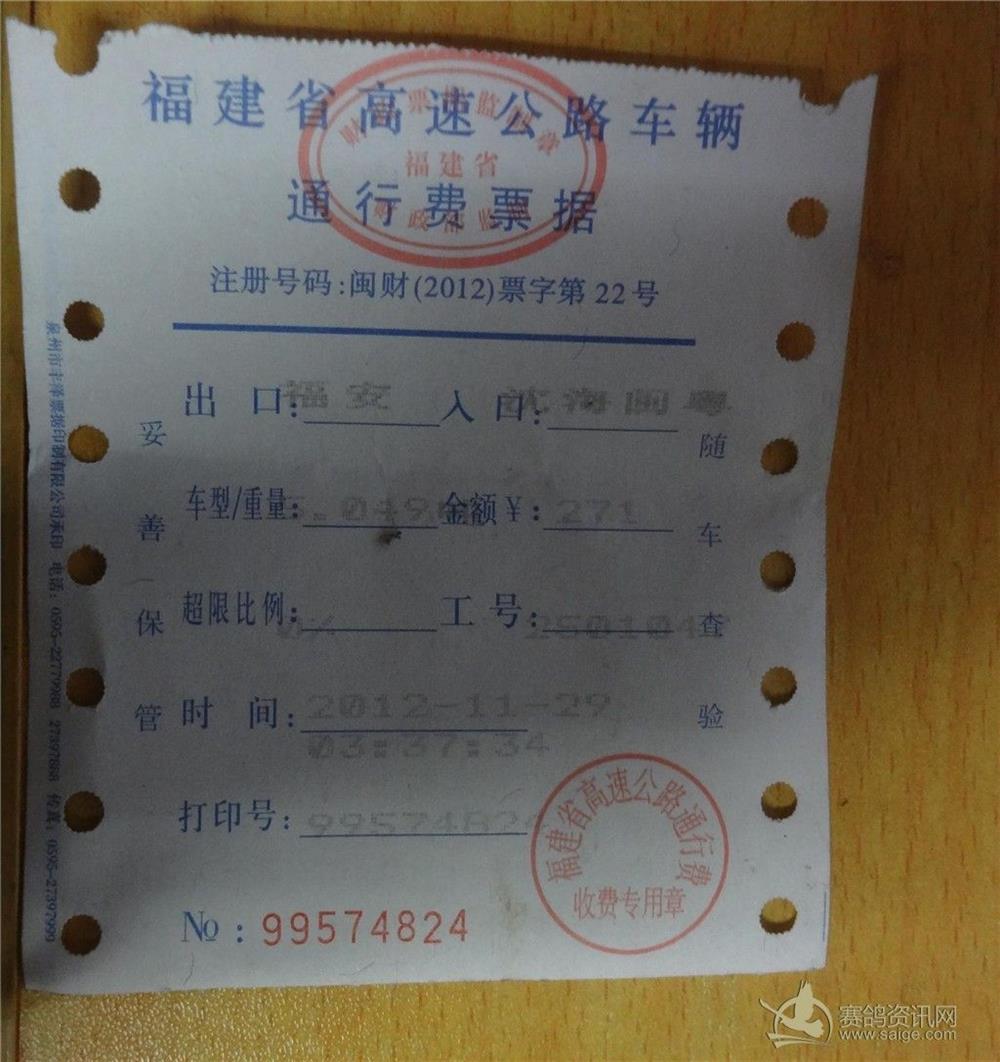 福建省高速公路车辆
通行费票据
福建省
注册号码:闽财(2012)票字第22号
出口: 福安 入口: 沈海闽粤
车型/重量: 金额¥: 271
超限比例: 0% 工号:
时间: 2012-11-29
03:37:34
打印号: 99574824
№:99574824
妥善保管
随车查验
福建省高速公路通行费
收费专用章
泉州市丰泽票据印制有限公司承印 电话: 0595-22779988 27397888 传真: 0595-27397999
赛鸽资讯网
www.saige.com